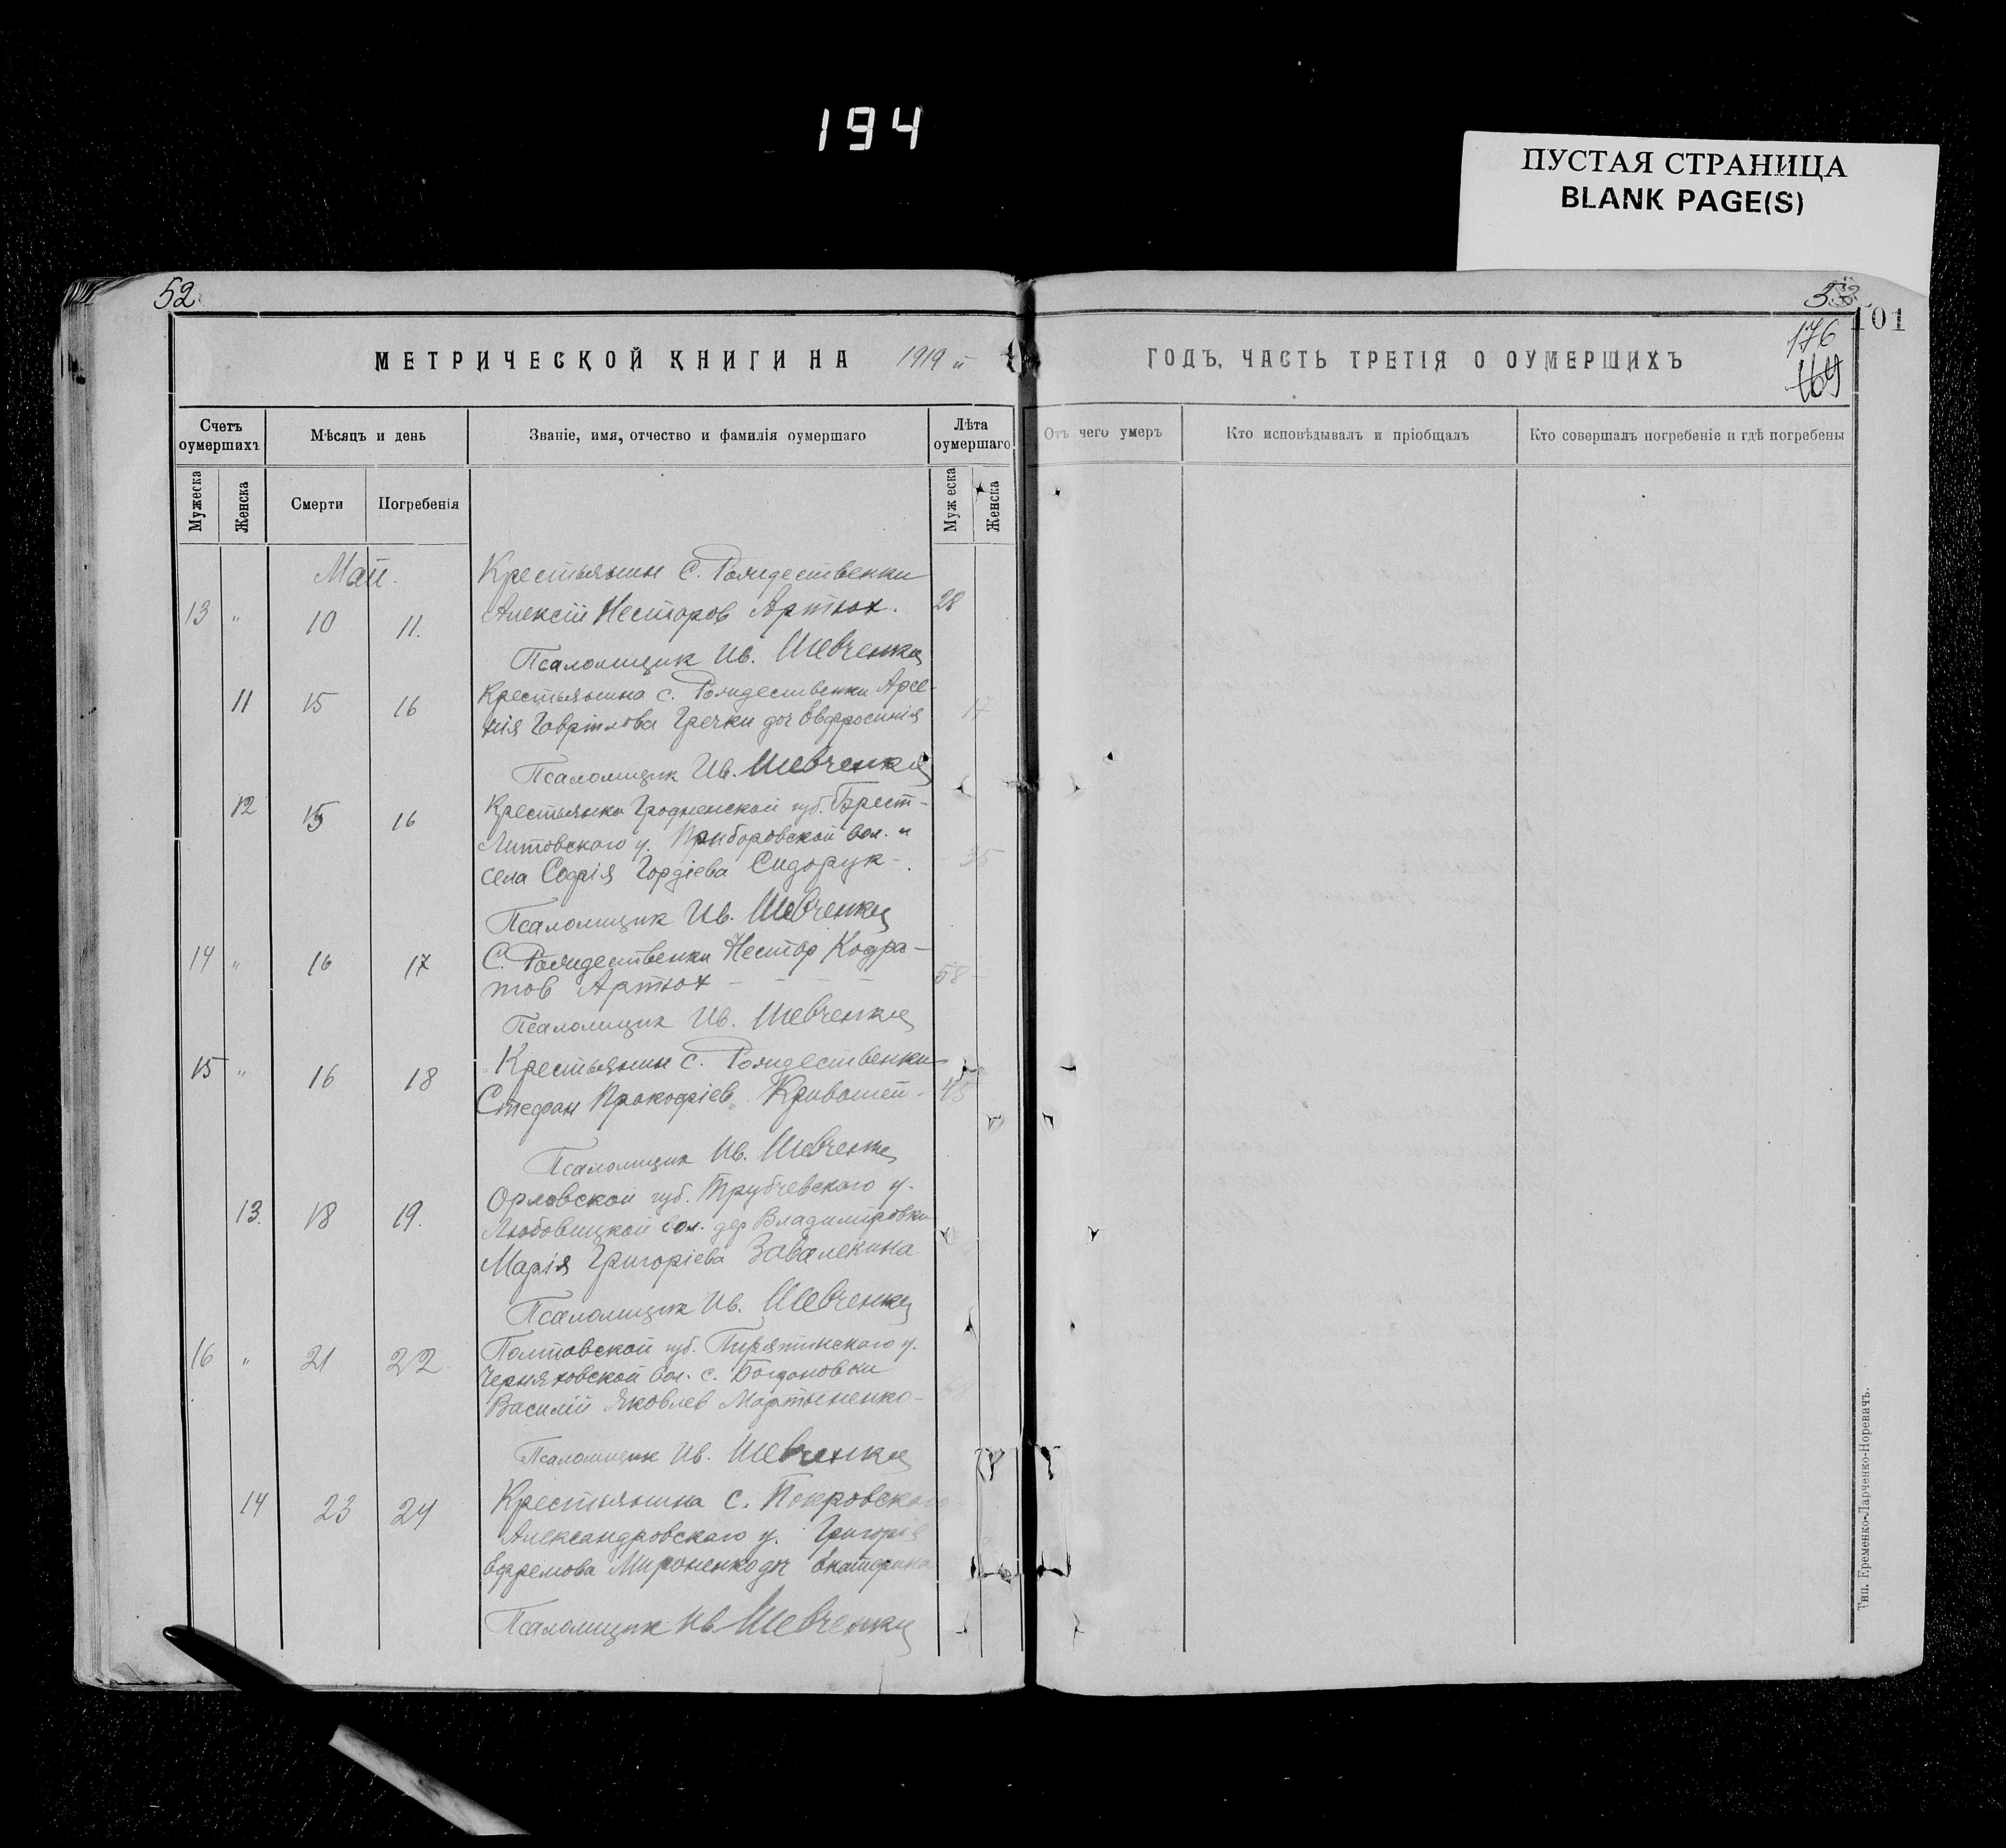 194
ПУСТАЯ СТРАНИЦА
BLANK PAGE(S)
52
53
101
176
169
МЕТРИЧЕСКОЙ КНИГИ НА 1919 й
ГОДЪ, ЧАСТЬ ТРЕТІЯ О ОУМЕРШИХЪ
Счетъ оумершихъ
Мѣсяцъ и день
Званіе, имя, отчество и фамилія оумершаго
Лѣта оумершаго
Отъ чего умеръ
Кто исповѣдывалъ и пріобщалъ
Кто совершалъ погребеніе и гдѣ погребены
Мужеска
Женска
Смерти
Погребенія
Мужеска
Женска
Май.
Крестьянин С. Рождественки
13 " 10 11. Алексій Несторов Артюх. 28
Псаломщик Ив. Шевченко
11 15 16 Крестьянина с. Рождественки Арсе-
нія Гаврілова Гречки доч Евфросинія 17
Псаломщик Ив. Шевченко
12 15 16 Крестьянка Гродненской губ. Брест-
Литовскаго у. Приборовской вол. и
села Софія Гордіева Сидорук - 35
Псаломщик Ив. Шевченко
14 " 16 17 С. Рождественки Нестор Кодра-
тов Артюх - 58 -
Псаломщик Ив. Шевченко
15 " 16 18 Крестьянин с. Рождественки
Стефан Прокофіев Кривошей - 45
Псаломщик Ив. Шевченко
Орловской губ. Трубчевскаго у.
13. 18 19. Любовицкой вол. дер Владимировки
Марія Григоріева Завалекина
Псаломщик Ив. Шевченко
16 " 21 22 Полтавской губ. Пирятинскаго у.
Черняховской вол. с. Богдановки
Василій Яковлев Мартыненко -
Псаломщик Ив. Шевченко
14 23 24 Крестьянина с. Покровскаго
Александровскаго у. Григорія
Ефремова Мироненко доч Екатерина
Псаломщик Ив Шевченко
Тип. Еременко-Ларченко-Норевичъ.